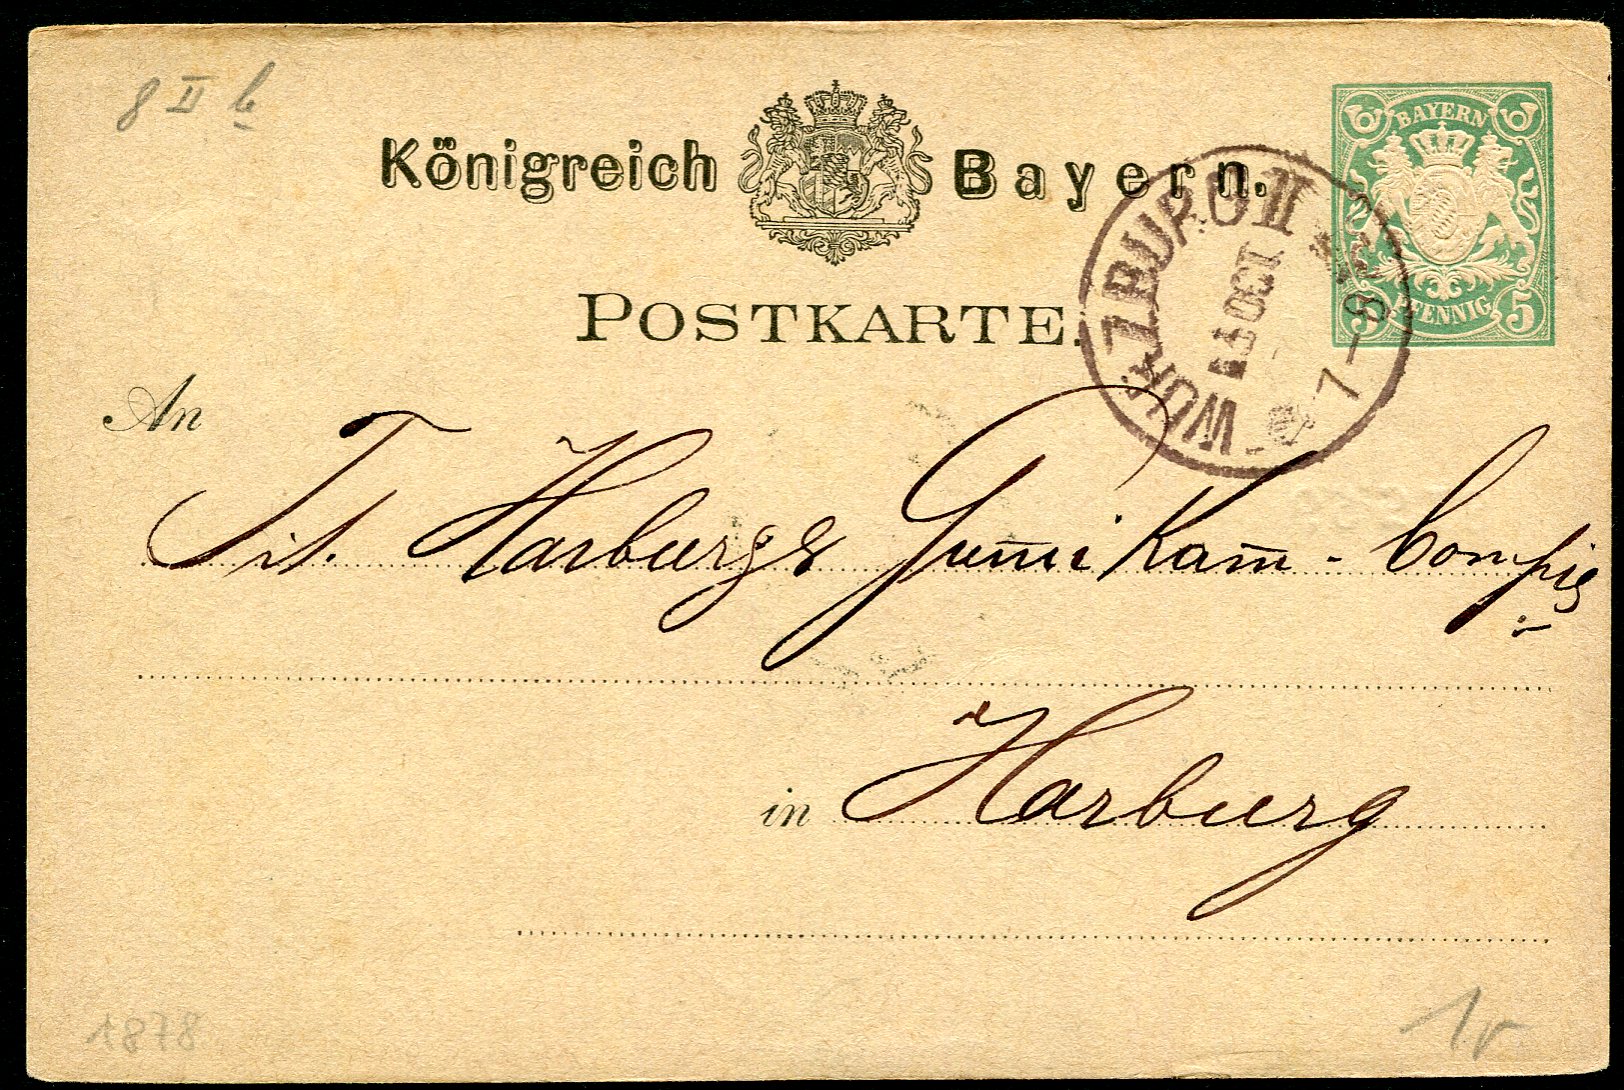 8 II b
Königreich Bayern.
BAYERN
5 PFENNIG 5
POSTKARTE.
WÜRZBURG II
OCT.
7-8
An
Tit. Harburger Gum̅i Kam̅ - Compie
in Harburg
1878